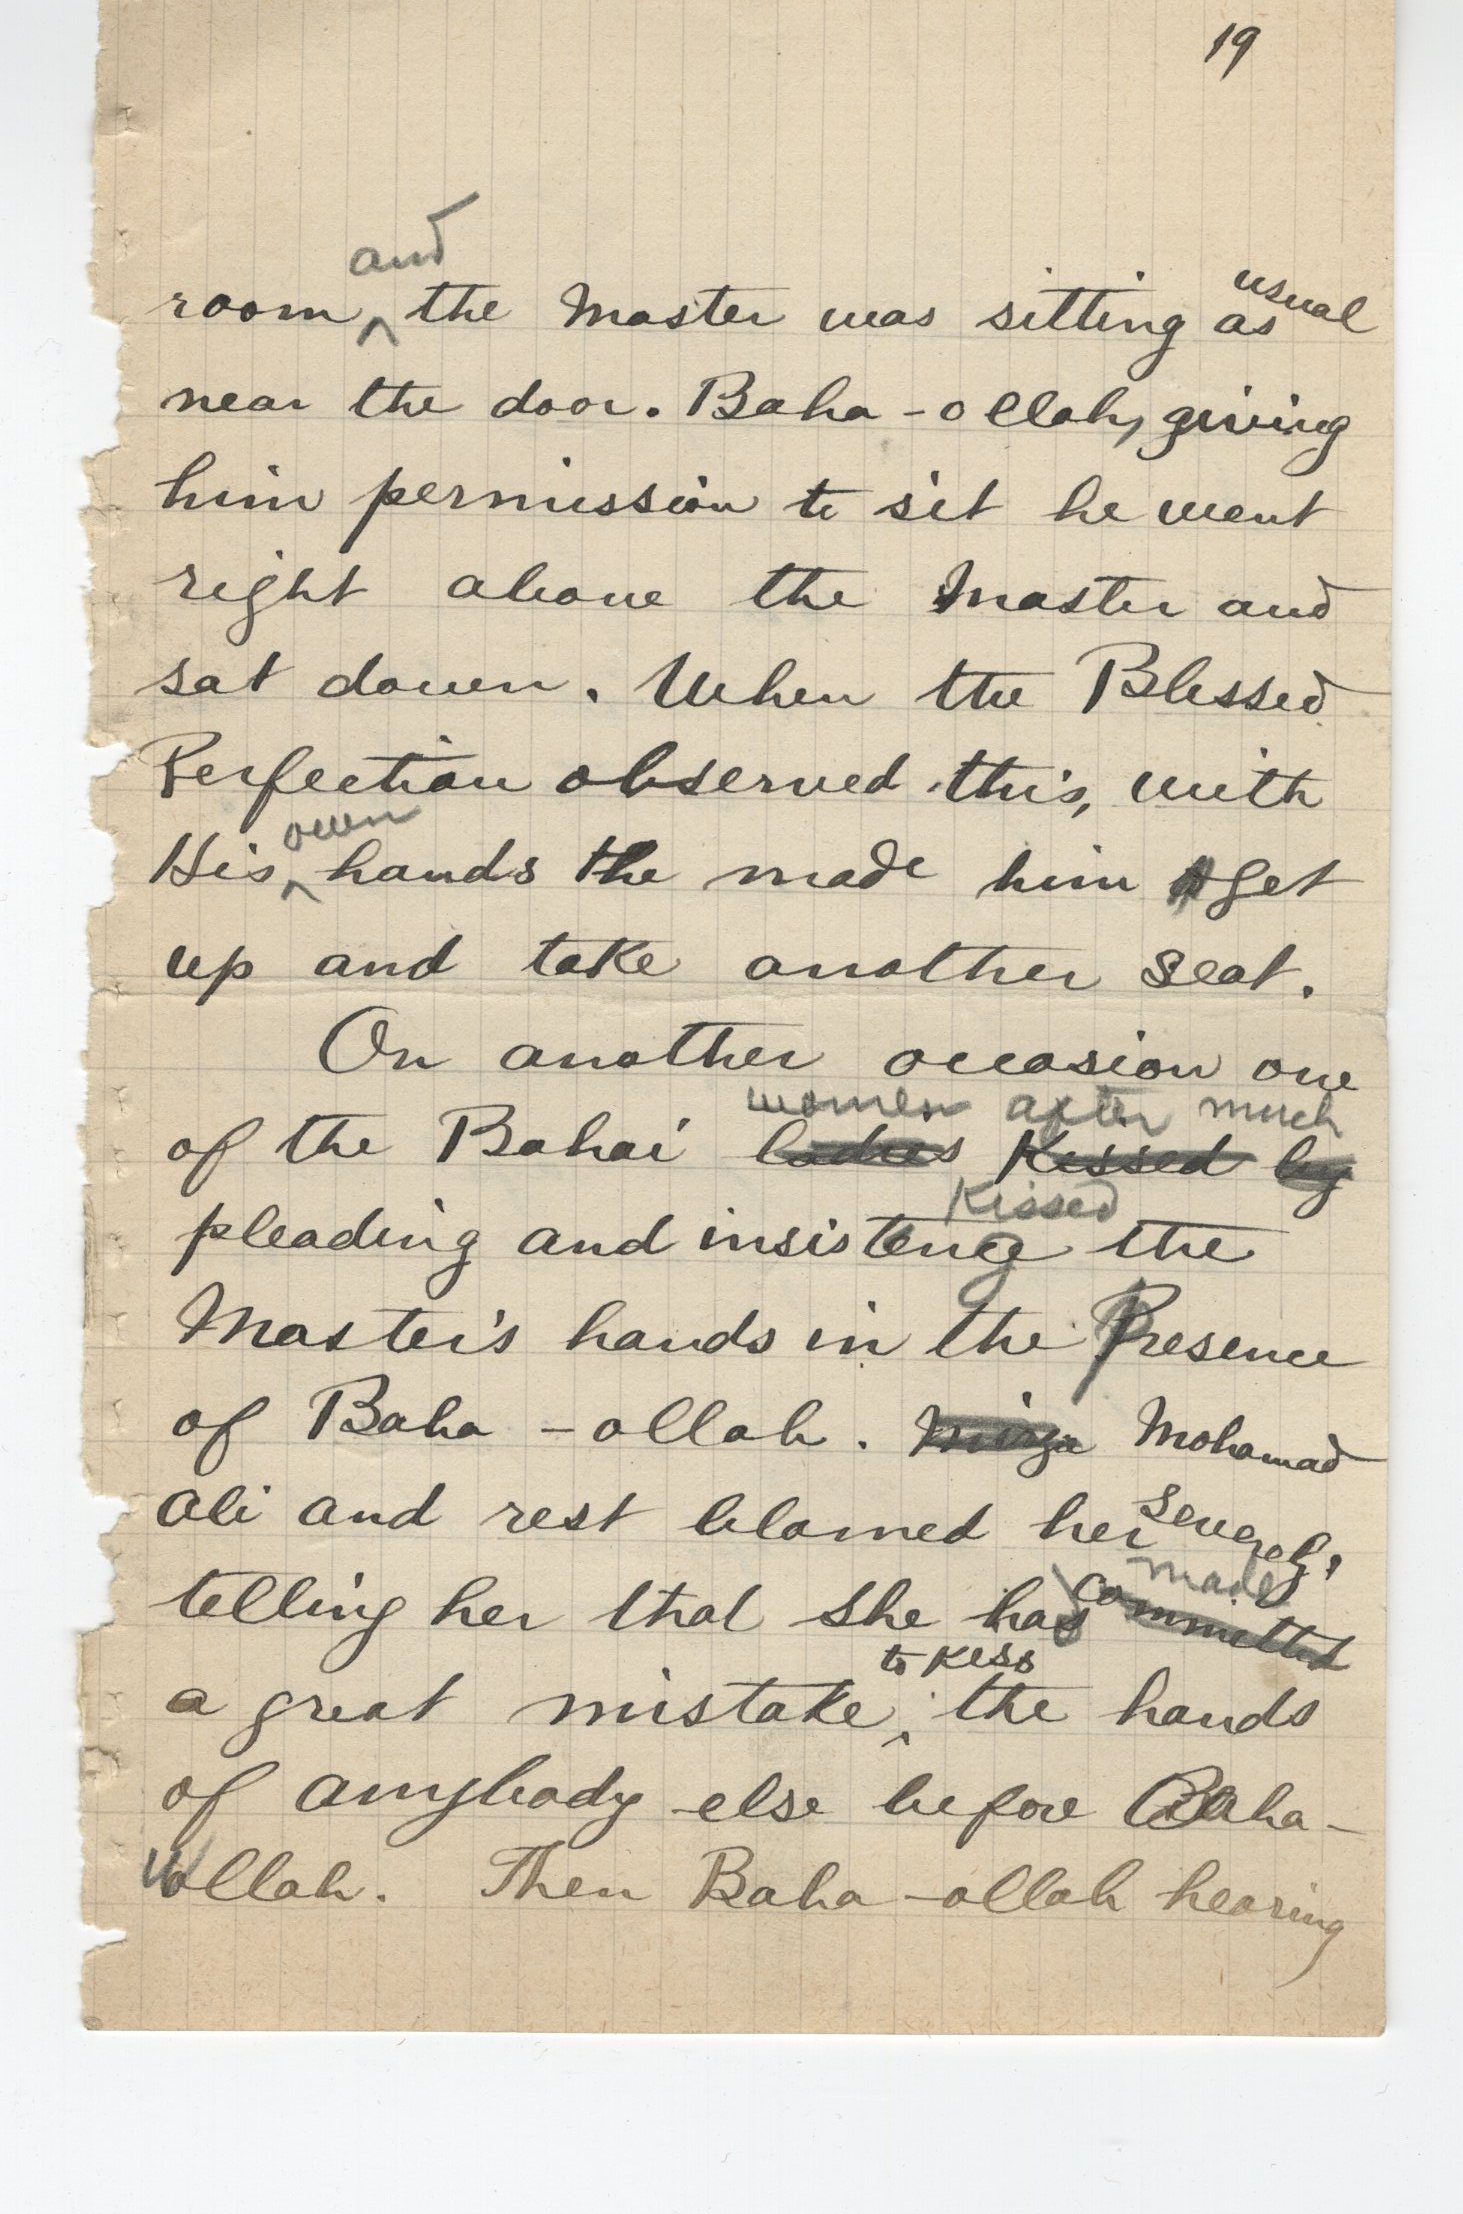 19
and
room ^ the Master was sitting as usual
near the door. Baha-ollah, giving
him permission to sit he went
right above the Master and
sat down. When the Blessed
Perfection observed this, with
own
His ^ hands the made him get
up and take another seat.
On another occasion one
women after much
of the Bahai ladies Kissed by
Kissed
pleading and insistence the
Master's hands in the Presence
of Baha-ollah. Mirza Mohamad
Ali and rest blamed her severely,
made
telling her that she has committed
to kiss
a great mistake ^ the hands
of anybody else before Baha-
ollah. Then Baha-ollah hearing